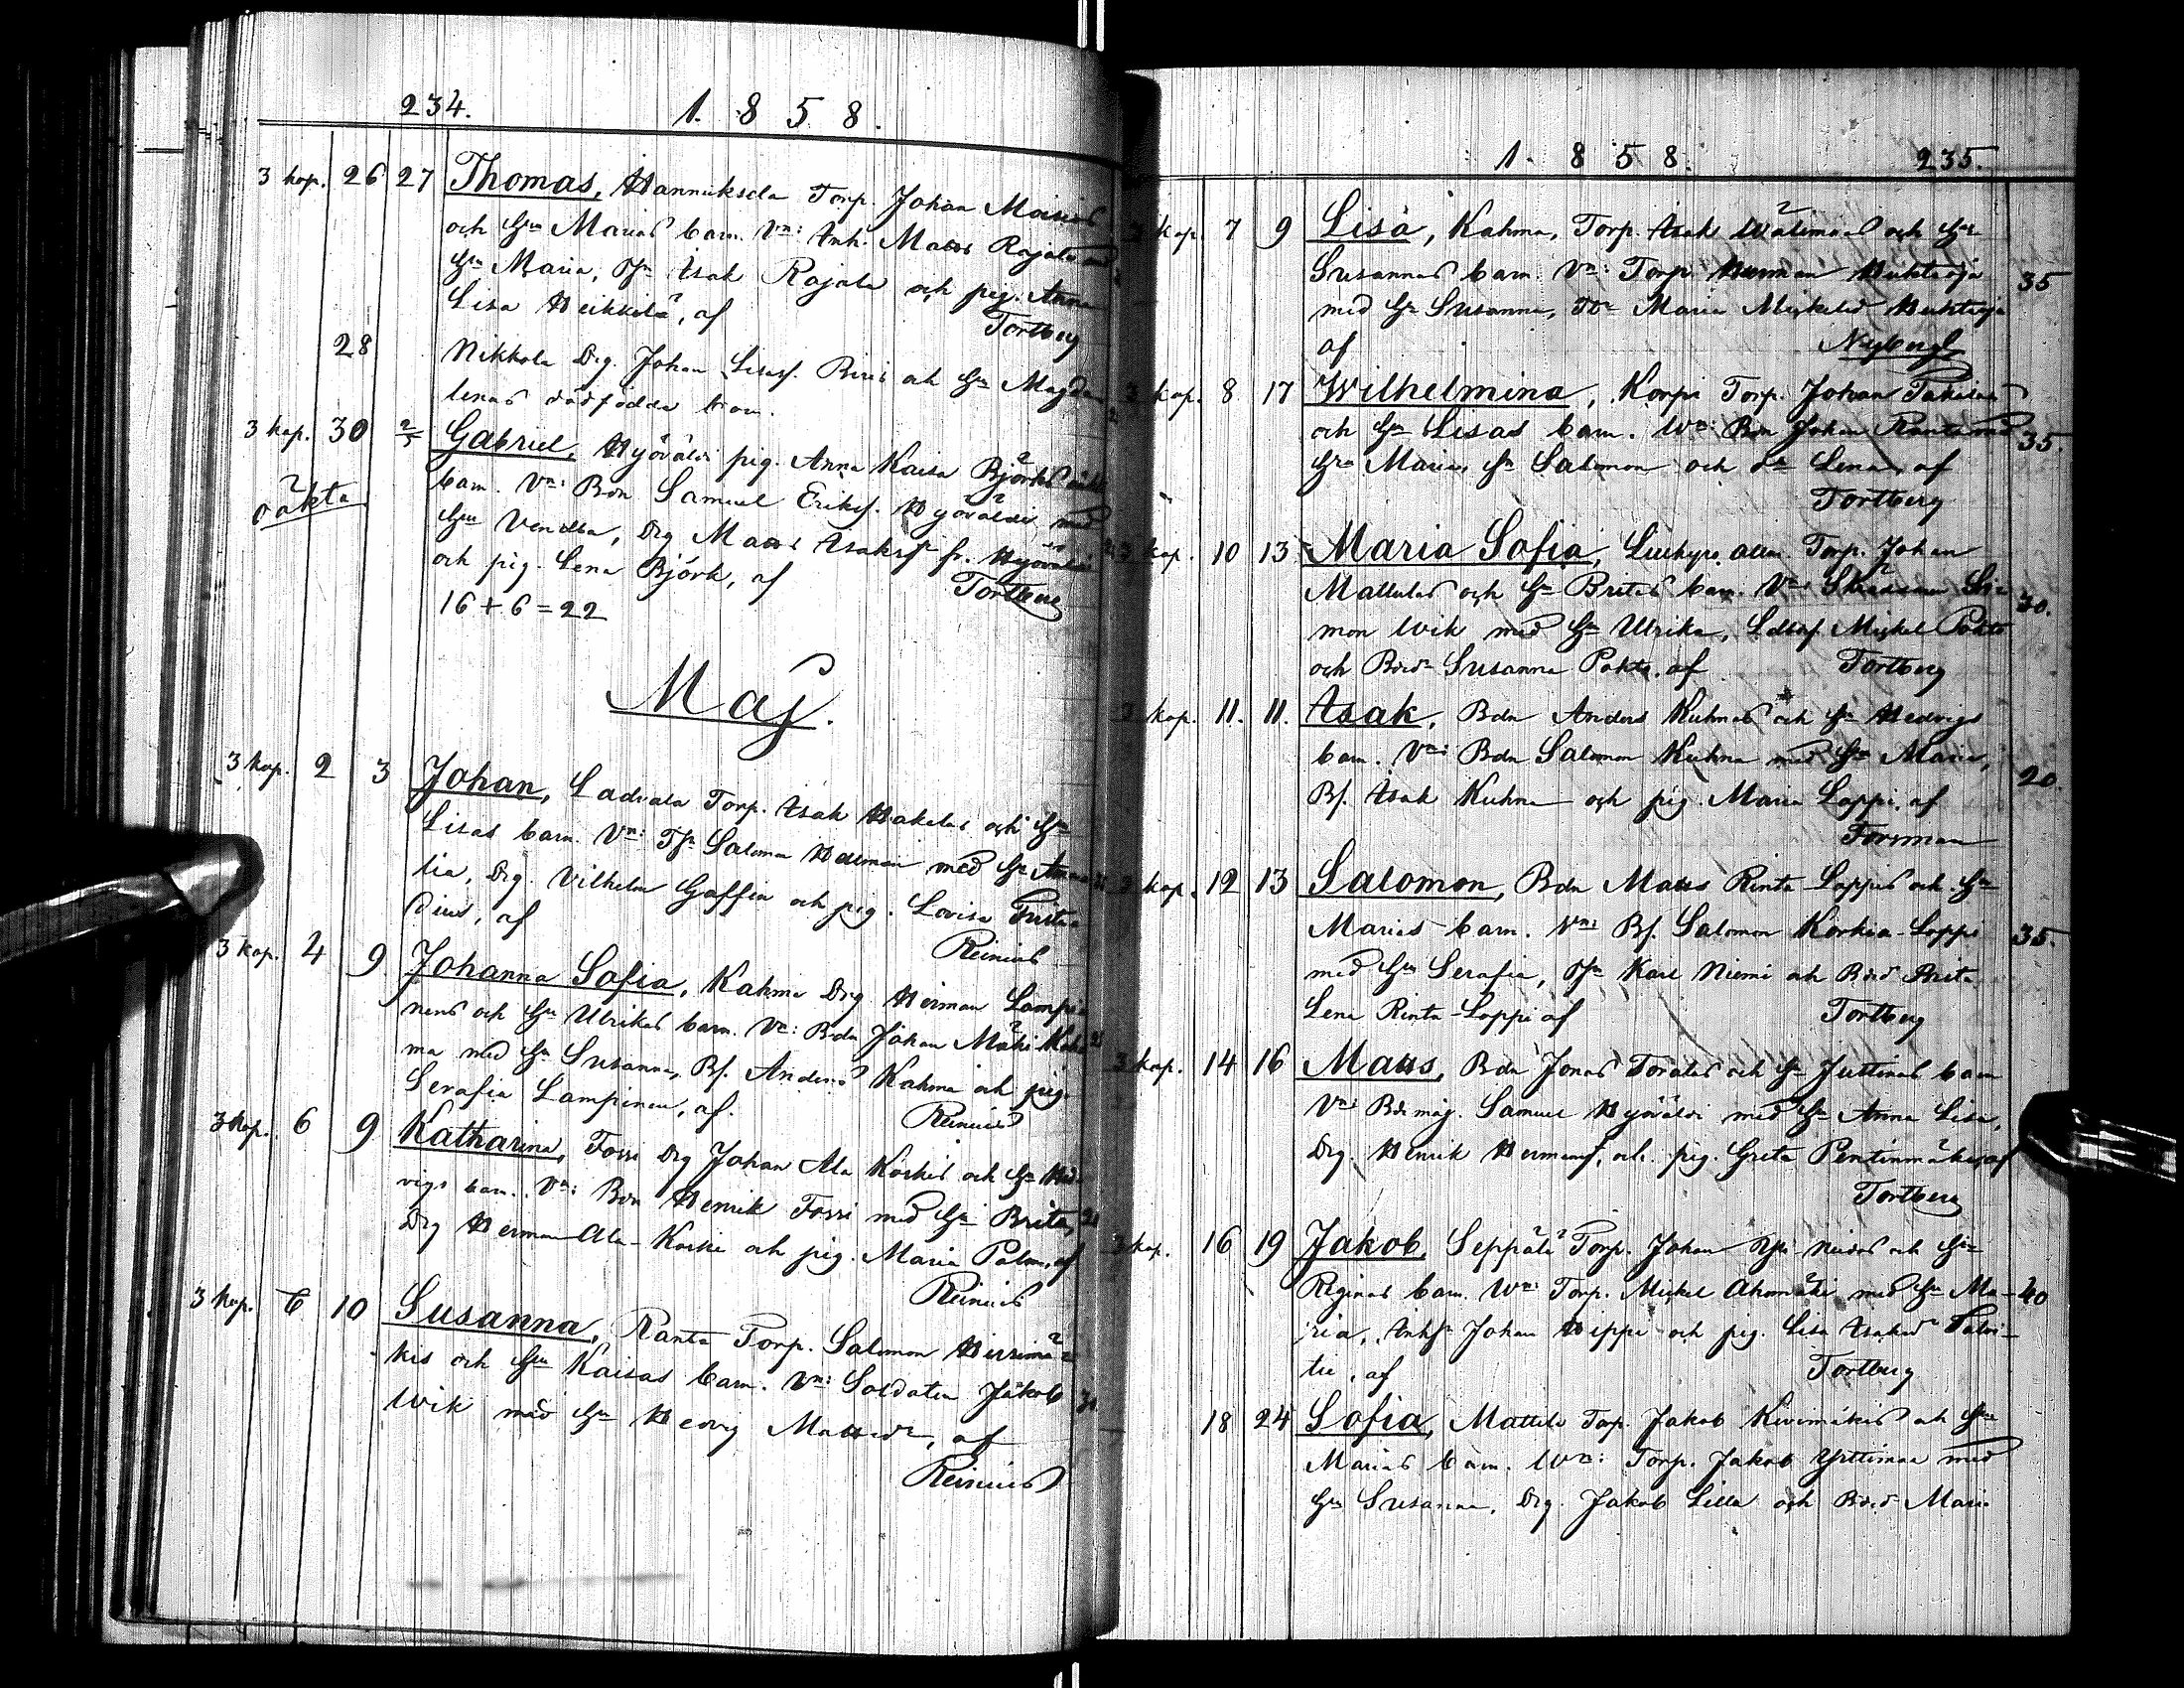 234. 1858.
3 kop. 26 27 Thomas, Hannuksela Torp. Johan
och Hu Marias barn. Vn: Inh. Matts Rajala
Hu Maria, Isak Rajala och pig. Anna
Lisa Heikkilä, af Tortberg
28 Nikkola Drg. Johan och Hu Magda
lenas dödfödda barn.
3 kop. 30 2/5 Gabriel, Hyöväldi pig. Anna Kaisa Björks oäkta
oäkta
barn. Vn: Bdn Samuel Eriks. Hyöväldi med
Hu Vendla, Drg Matts Isakss. fr. Hyöväldi
och pig. Lena Björk, af Tortberg
16 + 6 = 22
Maj.
3 kop. 2 3 Johan, Torp. Isak Hakalas och Hu
Lisas barn. Vn: Salomon med Hu Ama
lia, Drg. Vilhelm Gaffia och pig. Lovisa
dius, af Reinius
3 kop. 4 9 Johanna Sofia, Kahma Drg Herman Lampi
nens och Hu Ulrikas barn. Vn: Bdn Johan Mäki Kah
ma med Hu Susanna, Bs. Anders Kahma och pig.
Serafia Lampinen, af Reinius
3 kop. 6 9 Katharina, Forri Drg Johan Ala Koskis och Hu Hed
vigs barn. Vn: Bdn Henrik Forri med Hu Brita,
Drg Herman Ala-Koski och pig. Maria Palm, af
Reinius
3 kop. 6 10 Susanna, Ranta Torp. Salomon Hirsimä
kis och Hu Kaisas barn. Vn: Soldaten Jakob
Wik med Hu Hedvig Mattsdr, af
Reinius
1858. 235.
3 kop. 7 9 Lisa, Kahma, Torp. Isak Wälimaas och Hu
Susannas barn. Vn: Torp. Herman Huhtaoja 35
med Hu Susanna, Maria Huhtaoja
af Nyberg
3 kop. 8 17 Wilhelmina, Korpi Torp. Johan
och Hu Lisas barn. Wn: Bdn Johan Ranta med 35.
Hu Maria, Sn Salomon och dr Lena, af
Tortberg
3 kop. 10 13 Maria Sofia, Torp. Johan
Mattulas och Hu Britas barn. Vn: Si 30.
mon Wik med Hu Ulrika, Mickel Pokto
och Susanna Pokto, af Tortberg
3 kop. 11. 11. Isak, Bdn Anders Kuhnas och Hu Hedvigs
barn. Vn: Bdn Salomon Kuhna med Hu Maria, 20.
Bs. Isak Kuhna och pig. Maria Loppi, af
Forsman
3 kop. 12 13 Salomon, Bdn Matts Rinta-Loppis och Hu
Marias barn. Vn: Bs. Salomon Korkia-Loppi 35.
med Hu Serafia, Karl Niemi och Brita
Lena Rinta-Loppi af Tortberg
3 kop. 14 16 Matts, Bdn Jonas Toralas och Hu Justinas barn
Vn: Bdmåg. Samuel Hyöväldi med Hu Anna Lisa,
Drg. Henrik Hermans. och pig. Greta Pentinmäki, af
Tortberg
3 kop. 16 19 Jakob, Seppälä Torp. Johan och Hu
Reginas barn. Wn: Torp. Mickel Ahomäki med Hu Ma- 40
ria, Johan Heppi och pig. Lisa Isaksdr
tie, af Tortberg
18 24 Sofia, Mattila Torp. Jakob Kivimäkis och Hu
Marias barn. Wn: Torp. Jakob Yrttimaa med
Hu Susanna, Drg. Jakob Lilla och Maria